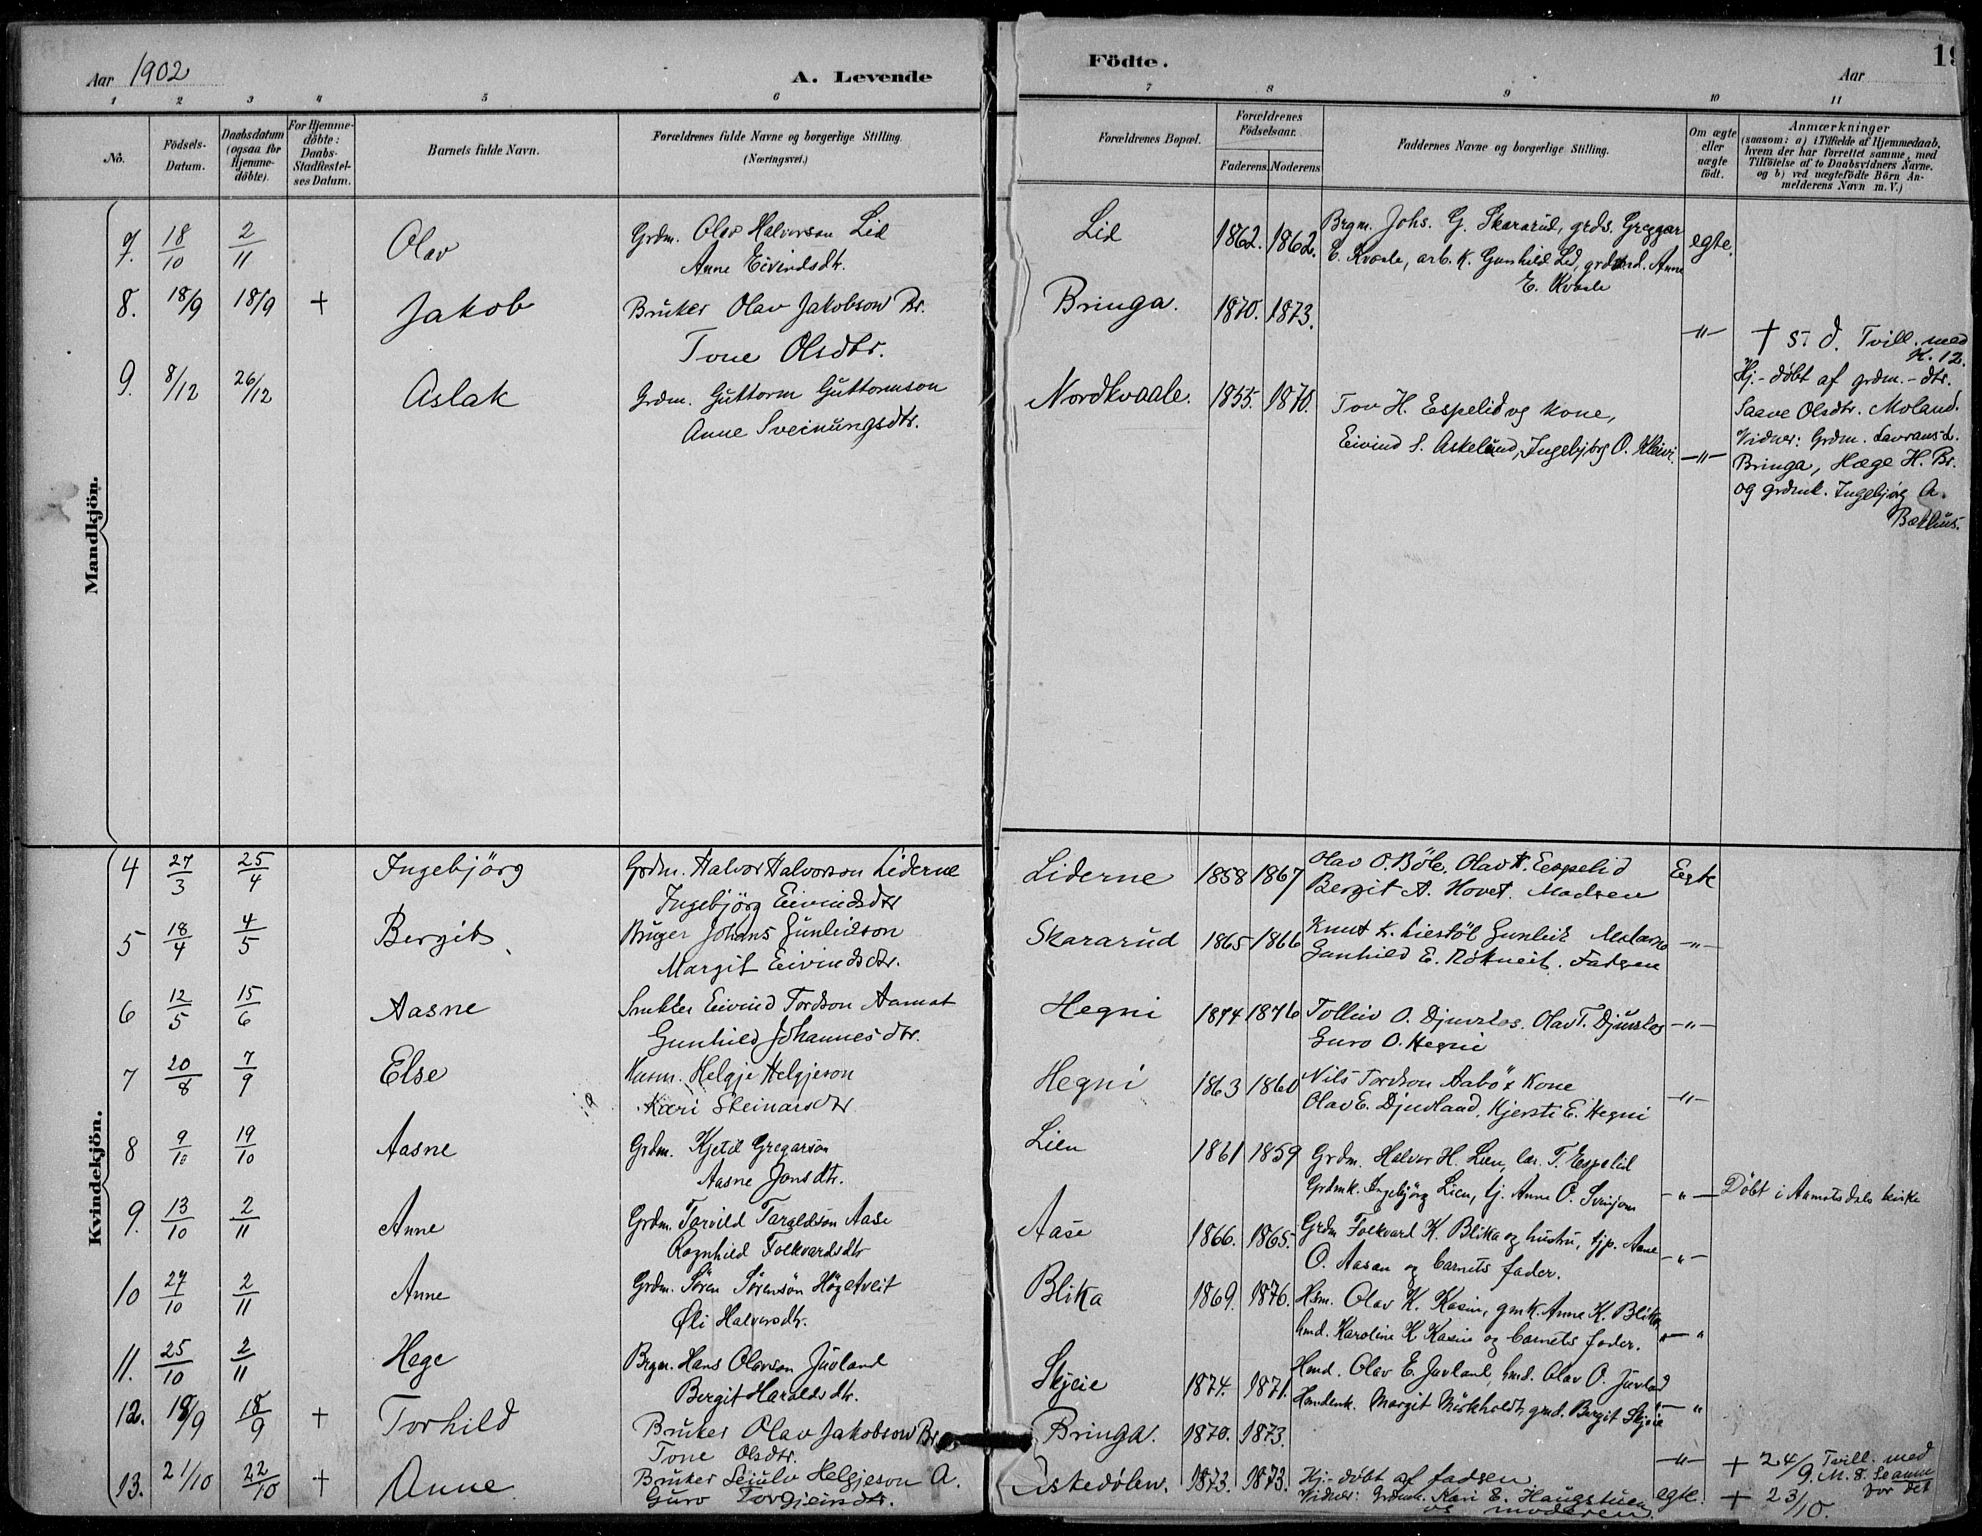 Aar 1902
A. Levende
Födte.
Aar
19
1 2 3 4 5 6 7 8 9 10 11
No.
Födsels-
Datum.
Daabsdatum
(ogsaa for
Hjemme-
döbte).
For Hjemme-
döbte:
Daabs-
Stadfæstel-
ses Datum.
Barnets fulde Navn.
Forældrenes fulde Navne og borgerlige Stilling.
(Næringsvei.)
Forældrenes Bopæl.
Forældrenes
Födselsaar.
Faderens. Moderens
Faddernes Navne og borgerlige Stilling.
Om ægte
eller
uægte
födt.
Anmærkninger
(saasom: a) i Tilfælde af Hjemmedaab,
hvem der har forrettet samme, med
Tilföielse af to Daabsvidners Navne.
og b) ved uægtefödte Börn An-
melderens Navn m. V.)
Mandkjön.
7. 18/10 2/11 Olav Grdm. Olav Halvorson Lid Lid 1862. 1862. Brgm. Johs. G. Skararud, grds. Greggar egte.
Anne Eivindsdtr. E. Kvaale, arb. K. Gunhild Lid, Anne
E. Kvaale
8. 18/9 18/9 + Jakob Bruker Olav Jakobson Br. Bringa. 1870. 1873. —"— † s. d. Tvill. med
K. 12.
Tone Olsdtr. Hj.-døbt af grdm.-dtr.
9. 8/12 26/12 Aslak Grdm. Guttorm Guttormson Nordkvaale. 1855. 1870. Tov H. Espelid og kone, Saave Olsdtr. Moland.
Anne Sveinungsdtr. Eivind S. Askelund, Ingebjörg O. Kleivi. —"— Vidner: Grdm. Lavrans L.
Bringa, Hæge H. Br.
og grdmk. Ingebjörg A.
Bækhus.
Kvindekjön.
4 27/3 25/4 Ingebjörg Grdm. Halvor Halvorson Liderne Liderne 1858 1867 Olav O. Böle, Olav K. Espelid Egte
Ingebjörg Eivindsdtr Bergit A. Hovet. Modren
5 18/4 4/5 Bergit Bruger Johans Gunleikson Skararud 1865 1866 Knut K. Liestöl Gunleik Moland —"—
Margit Eivindsdtr. Gunhild E. Fadren
6 12/5 15/6 Aasne Eivind Tordson Aamot Hegni 1874 1876 Tolleiv O. Djuvslos. Olav T. Djuvslos —"—
Gunhild Johannesdtr. Guro O. Hegni
7 20/8 7/9 Else Husm. Helgje Helgjeson Hegni 1863 1860 Nils Tordson Aabö & Kone
Kari Steinarsdtr Olav E. Djuvland, Kjersti E. Hegni —"—
8 9/10 19/10 Aasne Grdm. Kjetil Gregarson Lien 1861 1859 Grdm. Halvor H. Lien, lær. T. Espelid
Aasne Jonsdtr. Grdmk. Ingebjörg Lien, tj. Anne O. Svinjom —"— Döbt i Aamotsdals kirke
9. 13/10 2/11 Anne Grdm. Tarald­son Aase Aase 1866. 1865. Grdm Folkvard K. Blika og hustru, tjp. Anne
Ragnhild Folkvardsdtr O. Aasan og barnets fader. —"—
10 27/10 2/11 Anne Grdm. Sören Sörenson Högetveit Blika 1869. 1876. Hsm. Olav K. Kasin, gmk. Anne K. Blika,
Öli Halvorsdtr. hmd. Karoline K Kasin og barnets fader. "— "
11. 25/10 2/11 Hege Brgm. Hans Olavson Juvland Skjeie 1874. 1871. Hmd. Olav E. Juvland, hmd. Olav O. Juvland
Bergit Haraldsdtr. Margit Mörkholdt, gmd. Bergit Skjeie "— "
12. 18/9 18/9 + Torhild Bruker Olav Jakobson Br. Bringa. 1870. 1873.
Tone Olsdtr. —"— + 24/9. Tvill. med M. 8. Se anm for det
13. 21/10 22/10 + Anne Bruker Leiulv Helgjeson A. Askedölen. 1873. 1873. Hj.-døbt af fadren
Guro Torgjeirsdtr. Vidner: Grdmk. Kari E. Haugstuen egte. + 23/10.
og moderen.